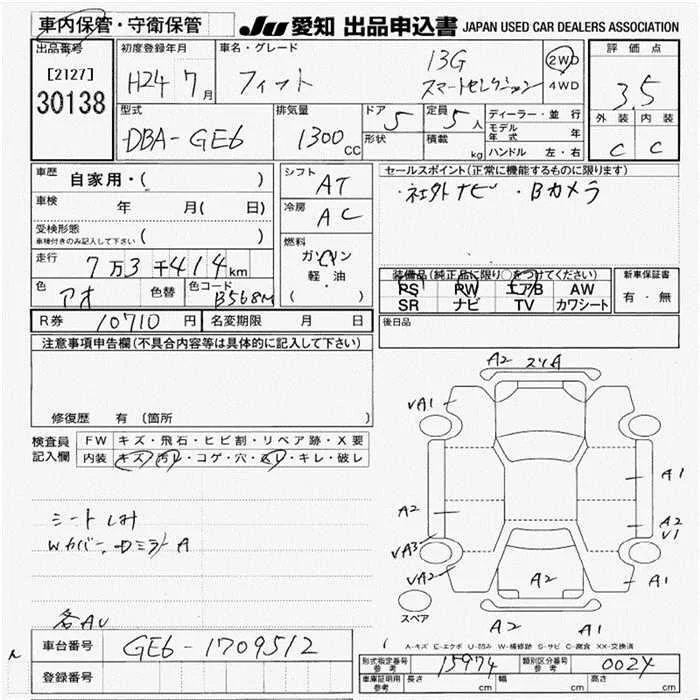 車内保管・守衛保管
JU 愛知 出品申込書 JAPAN USED CAR DEALERS ASSOCIATION
出品番号 初度登録年月 車名・グレード 13G 2WD 評価点
[2127] H24 7月 フィット スマートセレクション 4WD 3.5
30138 型式 排気量 ドア 5 定員 5人 ディーラー・並行 外装 内装
DBA-GE6 1300cc 形状 積載 kg モデル年式 年 C C
ハンドル 左・右
車歴 自家用・( ) シフト AT セールスポイント(正常に機能するものに限ります)
車検 年 月( 日) 冷房 AC ・社外ナビ ・Bカメラ
受検形態 車検付きのみ記入して下さい ( )
走行 7万3千414km 燃料 ガソリン 軽油 ( )
色 アオ 色替 色コード B568M 装備品(純正品に限り○をつけてください) 新車保証書
PS PW エアB AW 有・無
SR ナビ TV カワシート
R券 10710円 名変期限 月 日 後日品
注意事項申告欄(不具合内容等は具体的に記入して下さい)
修復歴 有 (箇所
検査員記入欄 FW キズ・飛石・ヒビ割・リペア跡・X要
内装 キズ・汚レ・コゲ・穴・スレ・キレ・破レ
シート しみ
Wカバー、Dミラー A
各AU
A2 スリA
VA1
A1
A2
A2
V1
VA3
VA2
A2
A1
スペア
A2 A1
車台番号 GE6-1709512
登録番号
A-キズ E-エクボ U-凹み W-補修跡 S-サビ C-腐食 XX-交換済
形式指定番号 参考 15974 類別区分番号 参考 0024
車庫証明用 参考 長さ cm 幅 cm 高さ cm